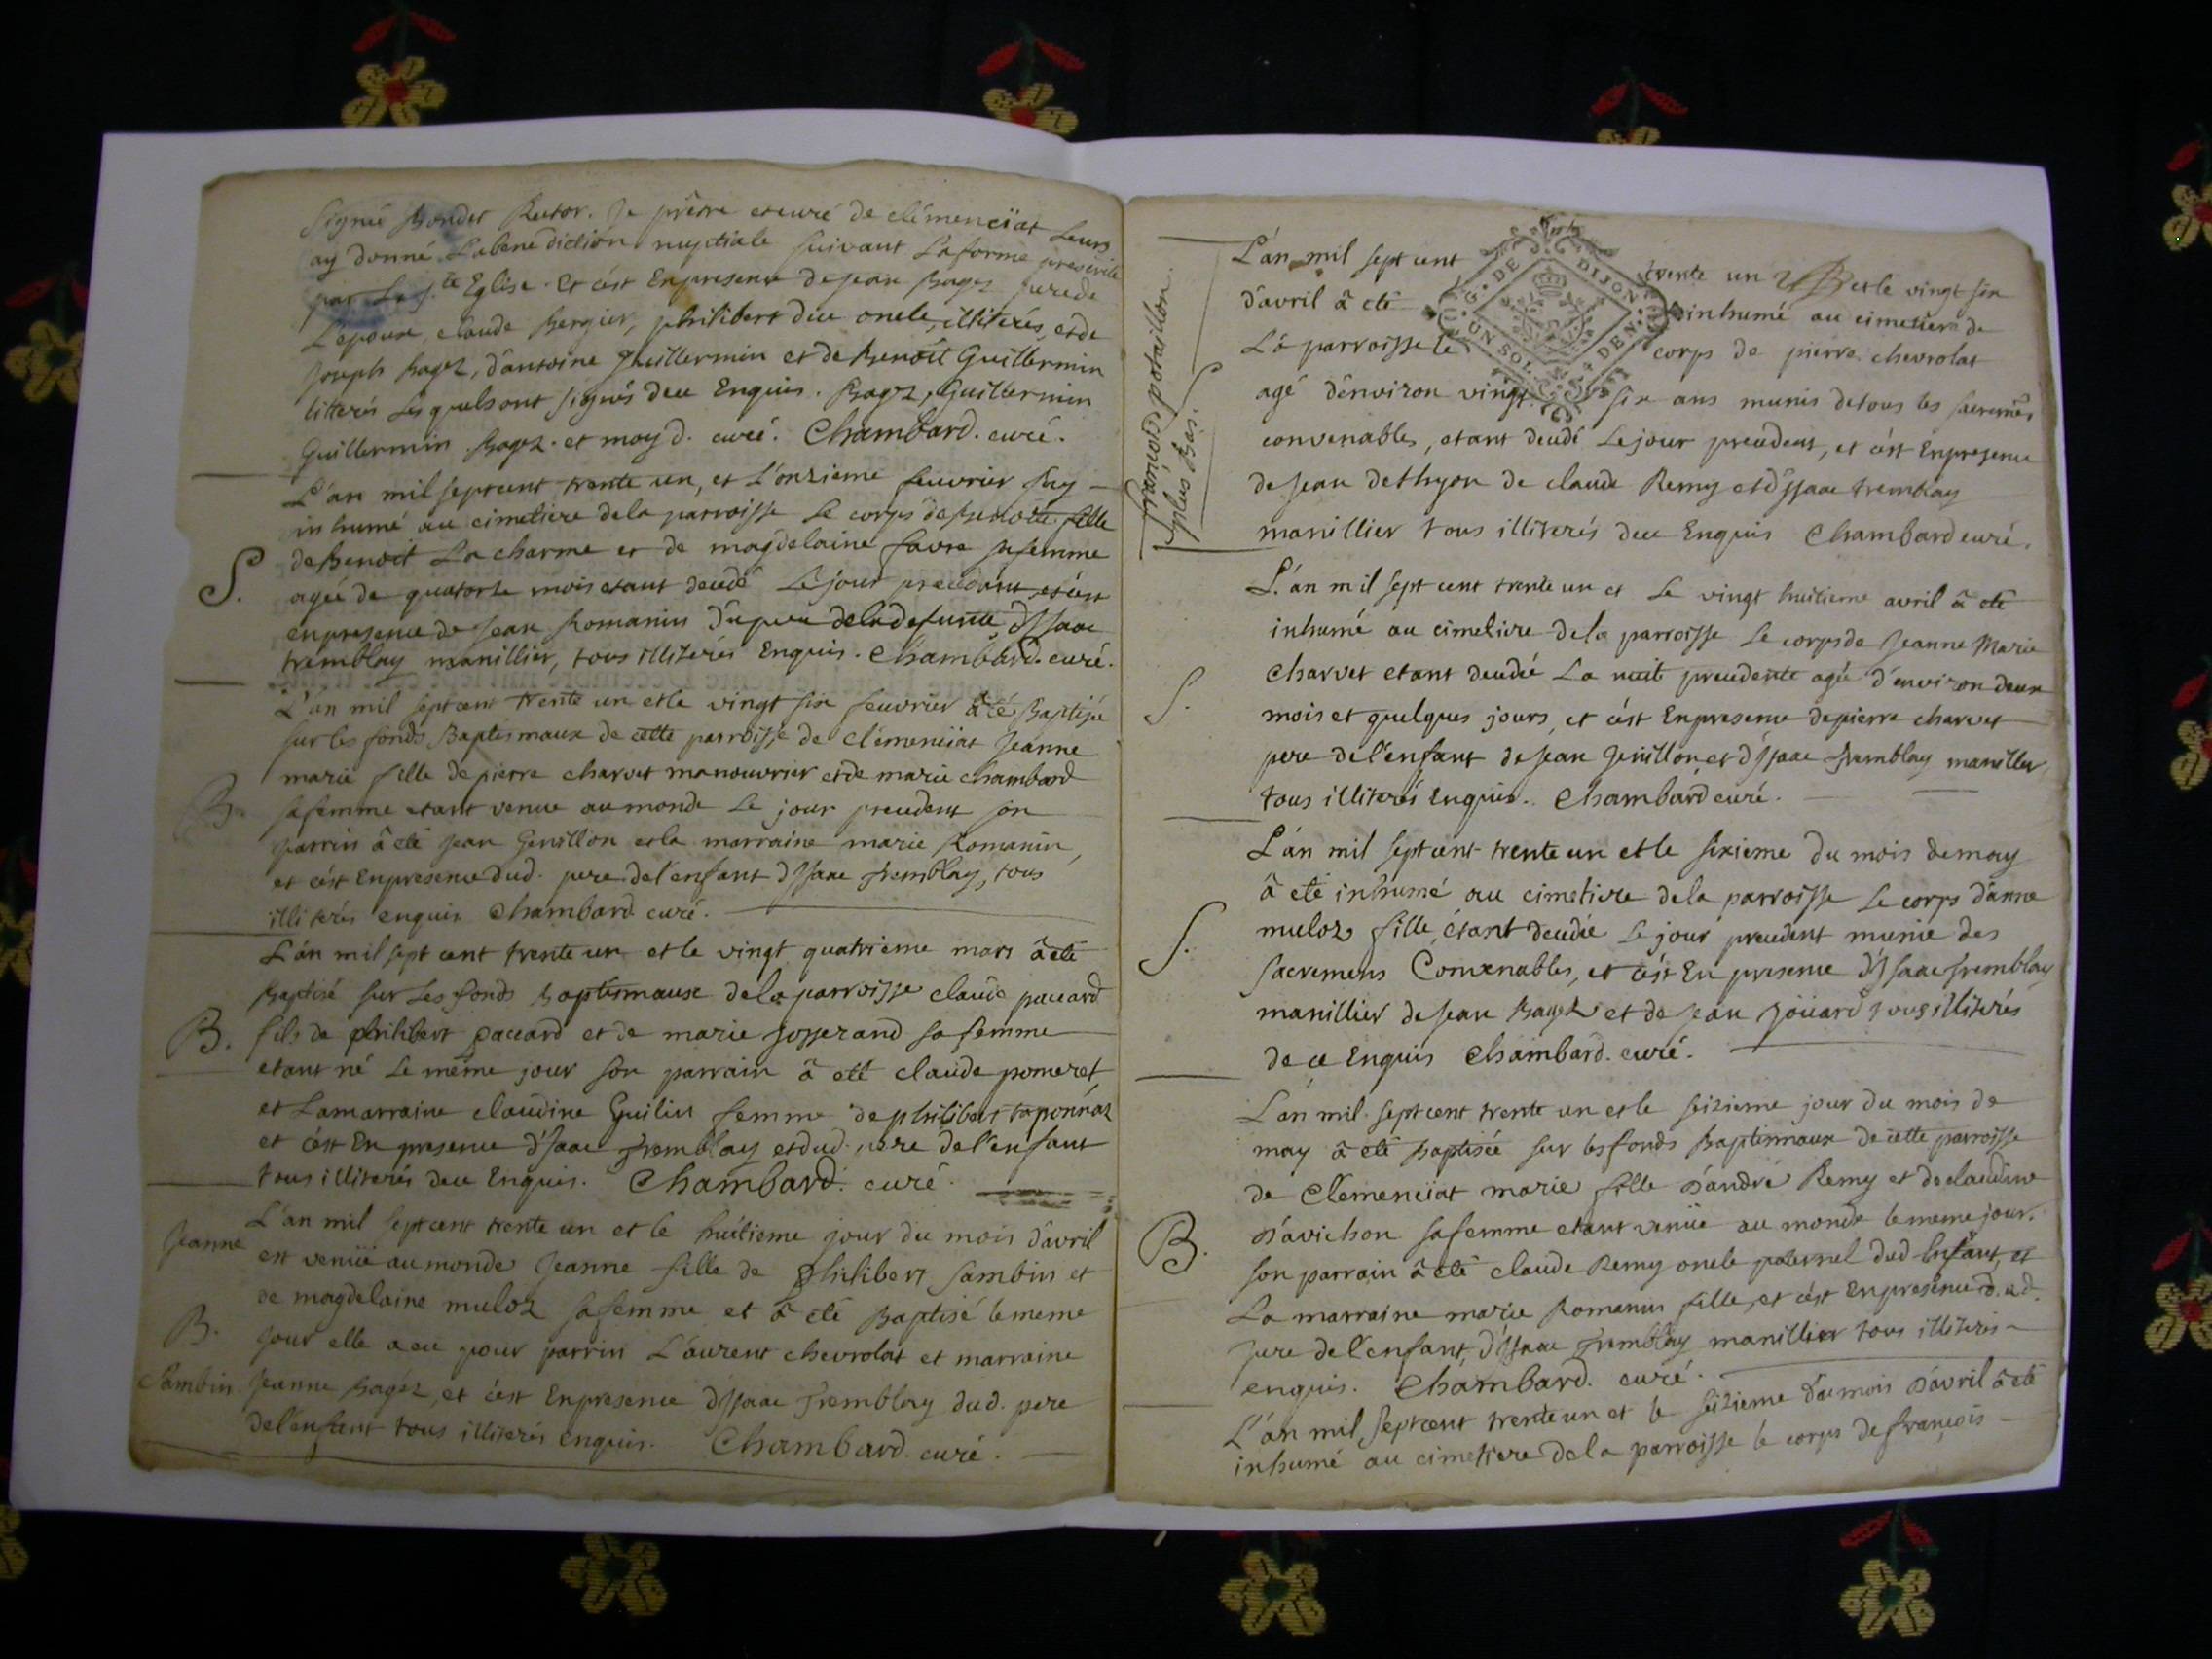 Signé Rector. Je prêtre et curé de clémenciat Leurs
ay donné Labenediction nuptiale suivant Laforme prescrite
par La s.te Eglise. Et c'est Enpresence de jean Bagez pere de
L'epouse, claude Bergier, philibert due oncle, illiterés, et de
joseph Bagez, d'antoine guillermin et de Benoit Guillermin
litterés Lesquels ont signés dece Enquis. Bagez, Guillermin
Guillermin Bagez. et moy d. curé. Chambard. curé.
L'an mil septcent trente un, et L'onzieme feuvrier fuy
inhumé au cimetiere dela parroisse Le corps de Benoite fille
de Benoit La charme et de magdelaine favre safemme
S. agée de quatorze mois etant decedé Le jour precedant et c'est
enpresence de jean Romanin deladefunte, d'Isaac
tremblay manillier, tous illiterés Enquis. Chambard. curé.
L'an mil septcent trente un et le vingt six feuvrier â eté Baptisée
sur les fonds Baptismaux de cette parroisse de clémenciat Jeanne
marie fille de pierre charvet manouvrier et de marie chambard
B. safemme etant venue au monde Le jour precedent son
parrin â eté jean Genillon et la marraine marie Romanin,
et c'est Enpresence dud. pere de l'enfant d'Isaac Tremblay, tous
illiterés enquis Chambard curé.
L'an mil sept cent trente un et le vingt quatrieme mars â eté
Baptisé sur Les fonds Baptismaux dela parroisse claude paccard
B. fils de philibert paccard et de marie josserand sa femme
etant né Le même jour son parrain â eté claude pomeret,
et Lamarraine claudine Guilin femme de philibert taponnaz
et c'est En presence d'Isaac Tremblay et dud. pere de l'enfant
tous illiterés dece Enquis. Chambard. curé.
L'an mil septcent trente un et le huitieme jour du mois d'avril
Jeanne est venüe au monde Jeanne fille de philibert sambin et
de magdelaine muloz safemme et â eté Baptisé lememe
B. jour elle a eu pour parrin L'aurent chevrolat et marraine
Sambin Jeanne Bagez, et c'est Enpresence d'Isaac Tremblay dud. pere
del'enfant tous illiterés enquis. Chambard. curé.
françois portaillon
plus Bas. S
G. DE DIJON
UN SOL. 4 DEN.
L'an mil sept cent trente un et le vingt six
d'avril â eté inhumé au cimetiere de
La parroisse le corps de pierre chevrolat
agé d'environ vingt six ans munis detous les sacremens
convenables, etant decedé Lejour precedent, et c'est Enpresence
de jean dethyon de claude Remy et d'Isaac tremblay
manillier tous illiterés dece Enquis Chambard curé.
L'an mil sept cent trente un et Le vingt huitieme avril â eté
inhumé au cimetiere dela parroisse Le corps de Jeanne Marie
S. charvet etant decedée La nuit precedente agée d'environ deux
mois et quelques jours, et c'est Enpresence de pierre charvet
pere de l'enfant de jean Genillon et d'Isaac Tremblay manillier,
tous illiterés Enquis. Chambard curé.
L'an mil septcent trente un et le sixieme du mois de may
â eté inhumé au cimetiere dela parroisse Le corps d'anne
S. muloz fille, etant decedée Le jour precedent munie des
sacremens Convenables, et c'est En presence d'Isaac Tremblay
manillier de jean Bagez et de jean joüard tous illiterés
de ce Enquis Chambard. curé.
L'an mil septcent trente un et le seizieme jour du mois de
may â eté Baptisée sur les fonds Baptismaux de cette parroisse
de Clemenciat marie fille d'andré Remy et de claudine
B. d'avichon safemme etant venüe au monde lememe jour.
son parrain â eté claude Remy oncle paternel dud Enfant, et
La marraine marie Romanin fille, et c'est Enpresence dud.
pere de l'enfant, d'Isaac Tremblay manillier tous illiterés
enquis. Chambard. curé.
L'an mil septcent trente un et le seizieme du mois d'avril â eté
inhumé au cimetiere dela parroisse le corps de françois